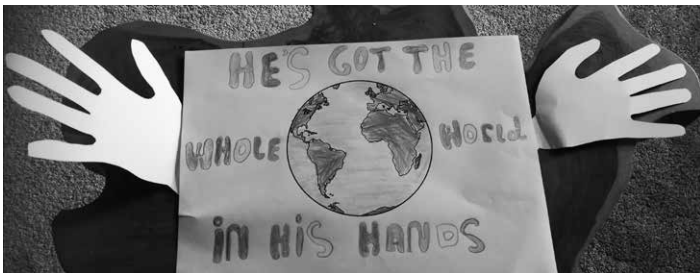 HE'S GOT THE
WHOLE WORLD
IN HIS HANDS